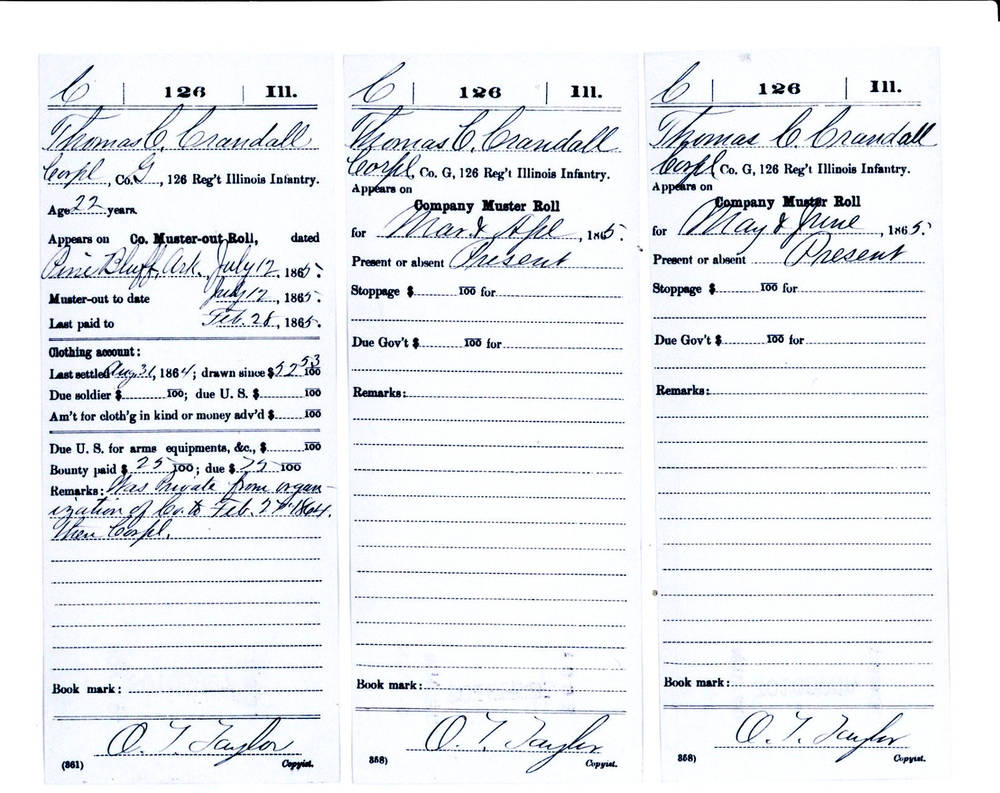 C | 126 | Ill.
Thomas C. Crandall
Corpl, Co. G, 126 Reg't Illinois Infantry.
Age 22 years.
Appears on Co. Muster-out Roll, dated
Pine Bluff, Ark. July 12, 1865.
Muster-out to date July 12, 1865.
Last paid to Feb. 28, 1865.
Clothing account:
Last settled Aug 31, 1864; drawn since $52 53/100
Due soldier $ 100; due U. S. $ 100
Am't for cloth'g in kind or money adv'd $ 100
Due U. S. for arms equipments, &c., $ 100
Bounty paid $ 25 100; due $ 75 100
Remarks: Was Private from organ-
ization of Co. to Feb. 1864.
then Corpl.
Book mark:
O. T. Taylor
(361) Copyist.
C | 126 | Ill.
Thomas C. Crandall
Corpl, Co. G, 126 Reg't Illinois Infantry.
Appears on
Company Muster Roll
for Mar & Apl, 1865.
Present or absent Present
Stoppage $ 100 for
Due Gov't $ 100 for
Remarks:
Book mark:
O. T. Taylor
358) Copyist.
C | 126 | Ill.
Thomas C Crandall
Corpl Co. G, 126 Reg't Illinois Infantry.
Appears on
Company Muster Roll
for May & June, 1865.
Present or absent Present
Stoppage $ 100 for
Due Gov't $ 100 for
Remarks:
Book mark:
O. T. Taylor
358) Copyist.